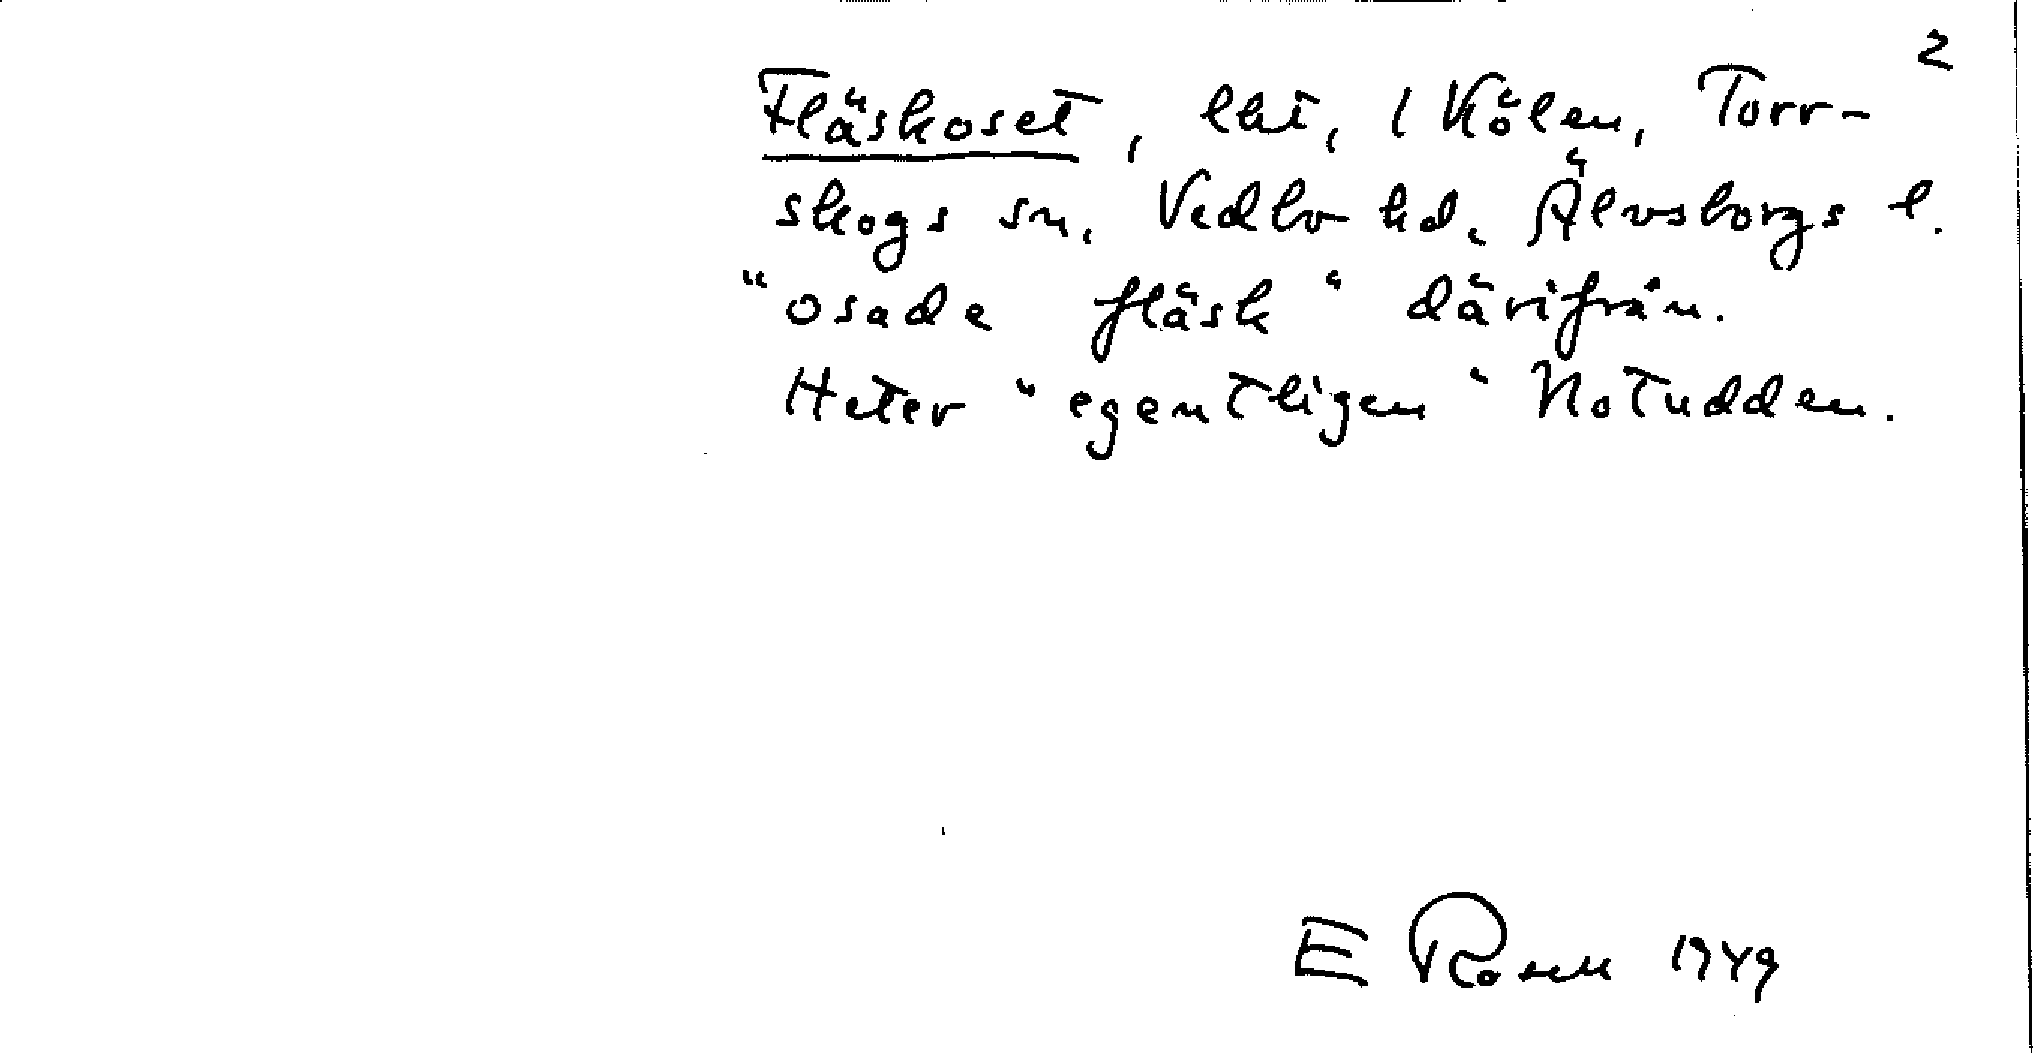 2
Fläskoset, lht, 1 Kölen, Torr-
skogs sn, Vedbo hd, Älvsborgs l.
"osade fläsk" därifrån.
Heter "egentligen" Notudden.
E Rosell 1949